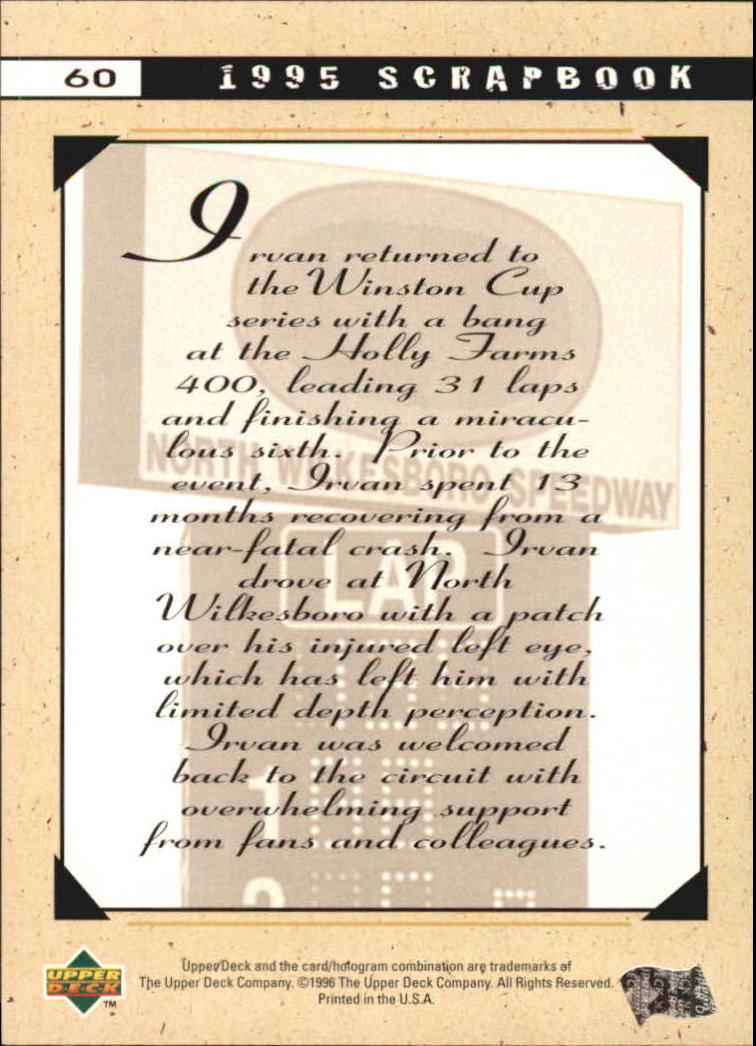 60 1995 SCRAPBOOK
Irvan returned to
the Winston Cup
series with a bang
at the Holly Farms
400, leading 31 laps
and finishing a miracu-
lous sixth. Prior to the
event, Irvan spent 13
months recovering from a
near-fatal crash. Irvan
drove at North
Wilkesboro with a patch
over his injured left eye,
which has left him with
limited depth perception.
Irvan was welcomed
back to the circuit with
overwhelming support
from fans and colleagues.
NORTH WILKESBORO SPEEDWAY
LAP
1
2
UPPER
DECK
TM
Upper Deck and the card/hologram combination are trademarks of
The Upper Deck Company. ©1996 The Upper Deck Company. All Rights Reserved.
Printed in the U.S.A.